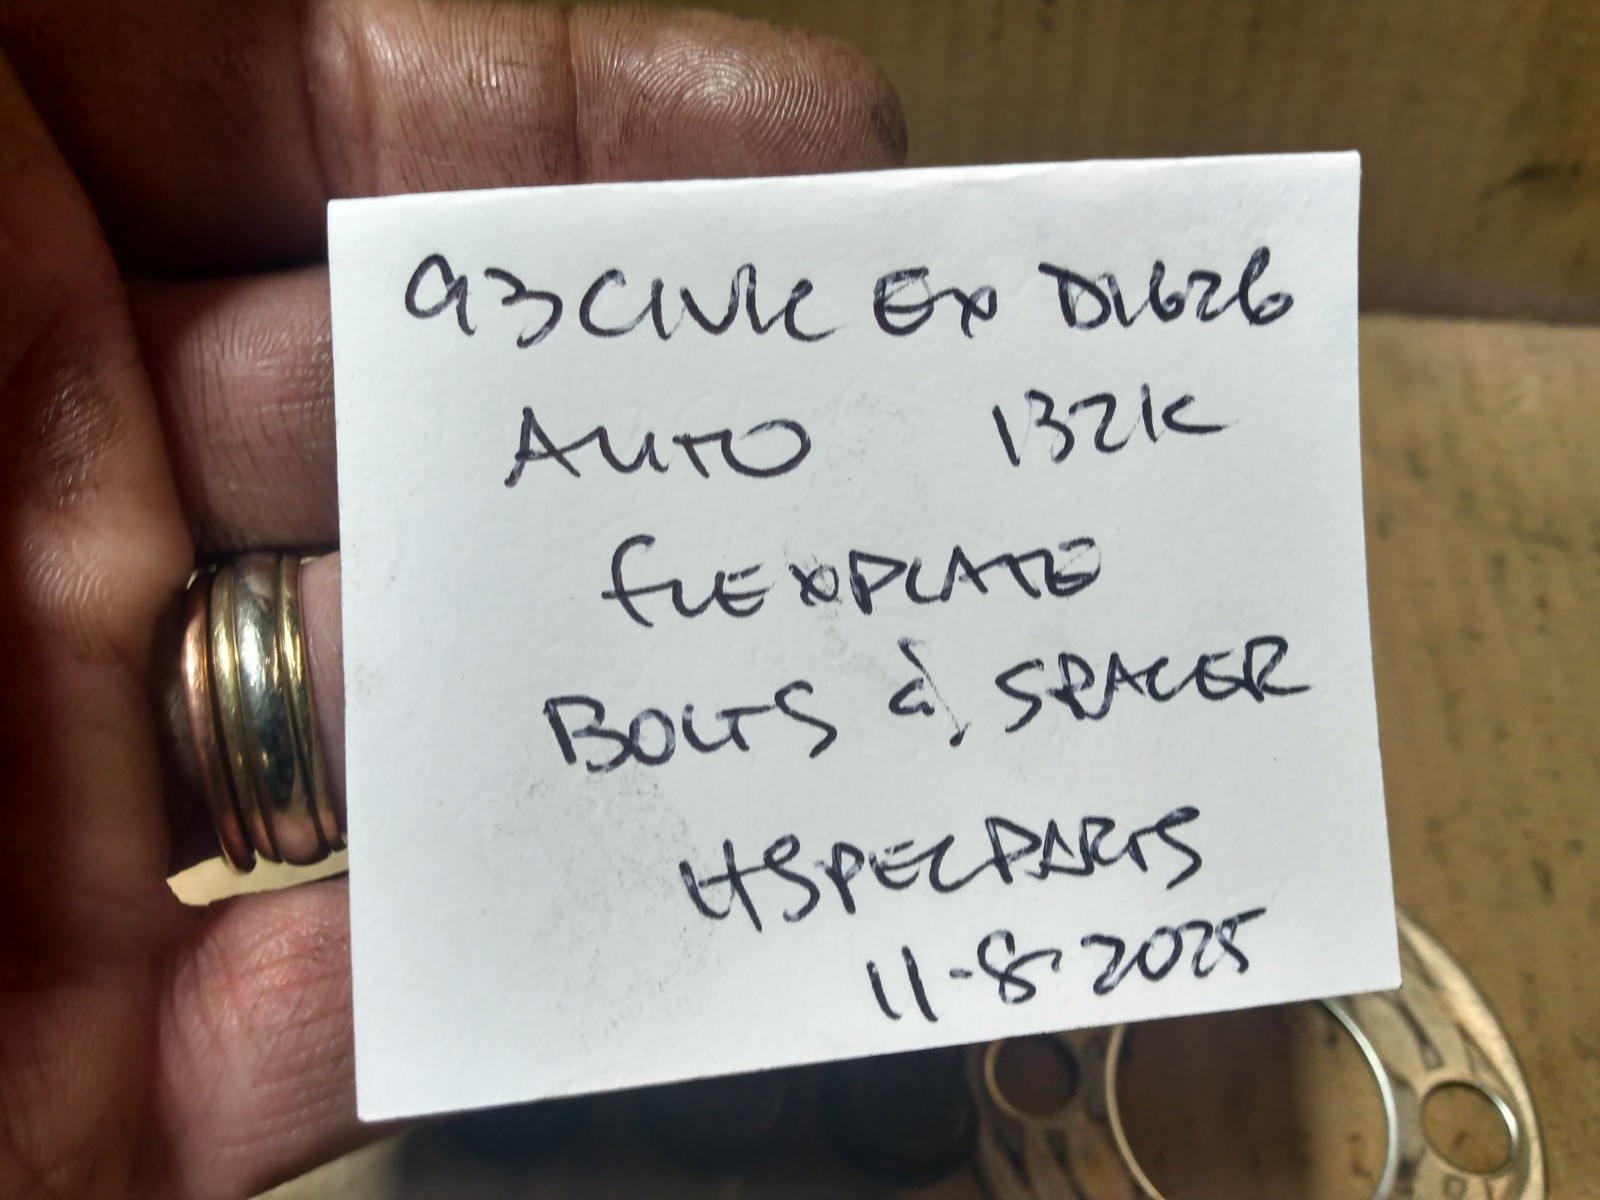 93 CIVIC EX D16Z6
AUTO 132K
FLEXPLATE
BOLTS & SPACER
HSPECPARTS
11-8-2025